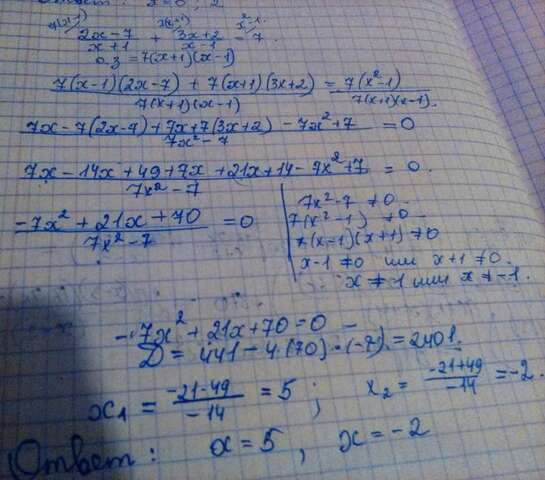 2x-7/x+1 + 3x+2/x-1 = 7.
О.З = 7(x+1)(x-1)
7(x-1)(2x-7) + 7(x+1)(3x+2) / 7(x+1)(x-1) = 7(x²-1) / 7(x+1)(x-1).
7x-7(2x-7)+7x+7(3x+2) - 7x²+7 / 7x²-7 = 0
7x-14x+49+7x+21x+14-7x²+7 / 7x²-7 = 0.
-7x²+21x+70 / 7x²-7 = 0
7x²-7 ≠0
7(x²-1) ≠0
7(x-1)(x+1) ≠0
x-1 ≠0 или x+1 ≠0.
x ≠ 1 или x ≠ -1.
-7x²+21x+70=0
D = 441-4·(70)·(-7)=2401.
x₁ = -21-49/-14 = 5 ; x₂ = -21+49/-14 = -2.
Ответ: x=5, x=-2